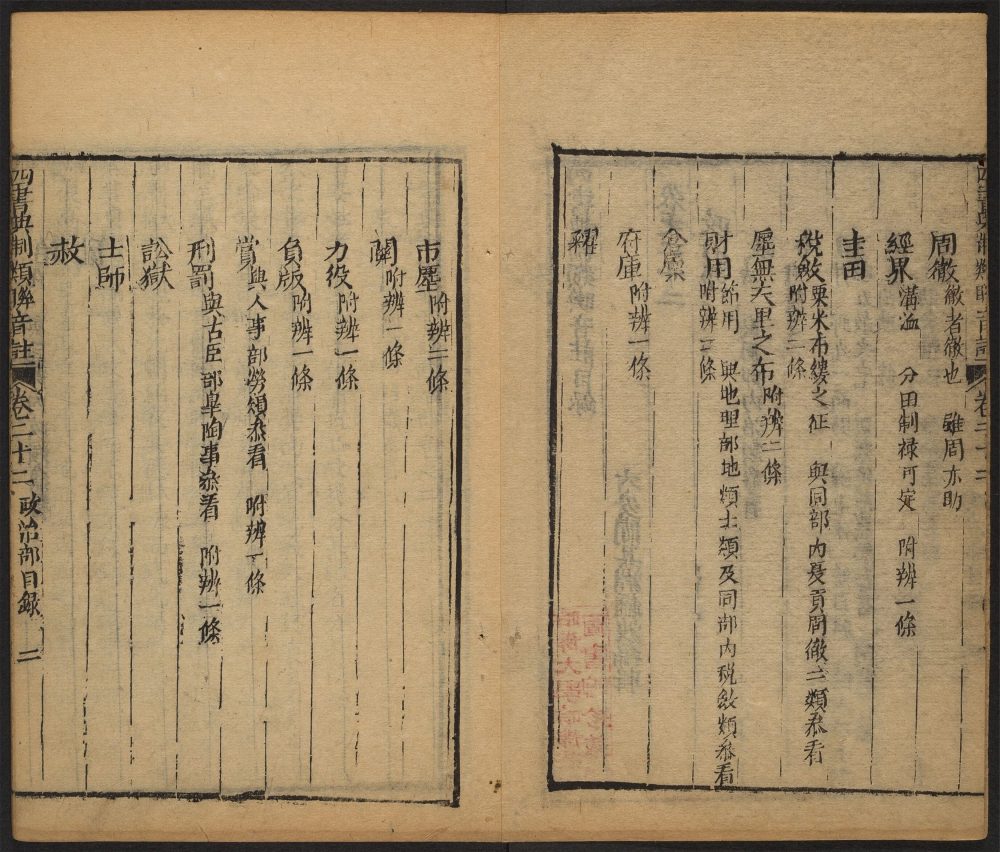 周徹 徹者徹也 雖周亦助
經界 溝洫 分田制祿可定 附辨一條
圭田
稅斂 粟米布縷之征 與同部內夏貢周徹二類叅看
附辨二條
廛無夫里之布 附辨二條
財用 節用 與地理部地類土類及同部內稅斂類叅看
附辨三條
倉廩
府庫 附辨一條
糴
市廛 附辨二條
關 附辨一條
力役 附辨一條
負版 附辨一條
賞 與人事部勞類叅看 附辨一條
刑罰 與古臣部臯陶事叅看 附辨一條
訟獄
士師
赦
四書典制類聯音註 卷二十二 政治部目錄 二